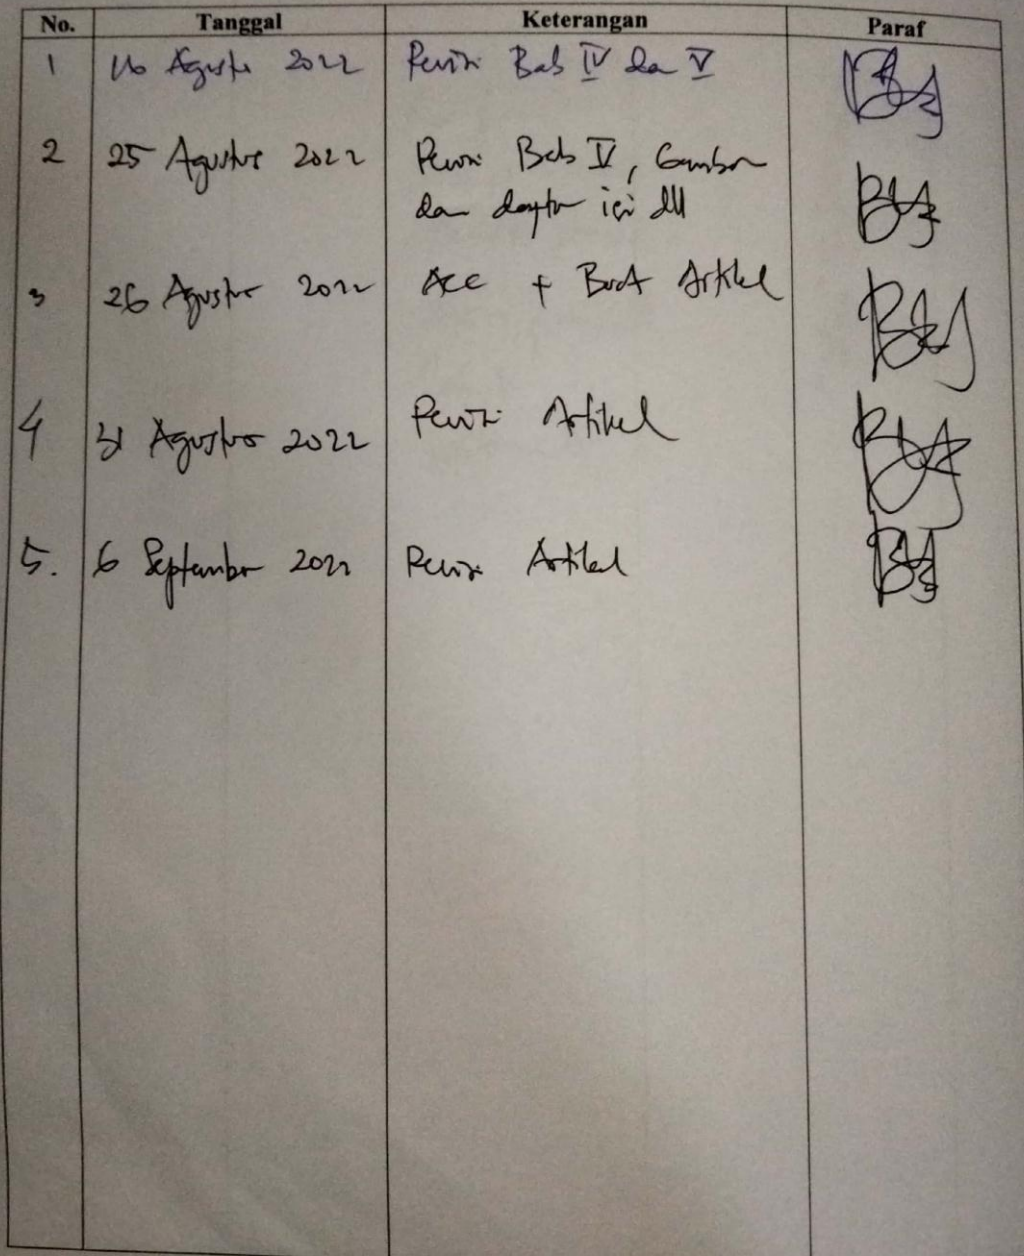 No. Tanggal Keterangan Paraf
1 16 Agustus 2022 Revisi Bab IV dan V
2 25 Agustus 2022 Revisi Bab IV, Gambar
dan daftar isi dll
3 26 Agustus 2022 Acc + Buat Artikel
4 31 Agustus 2022 Revisi Artikel
5. 6 September 2022 Revisi Artikel